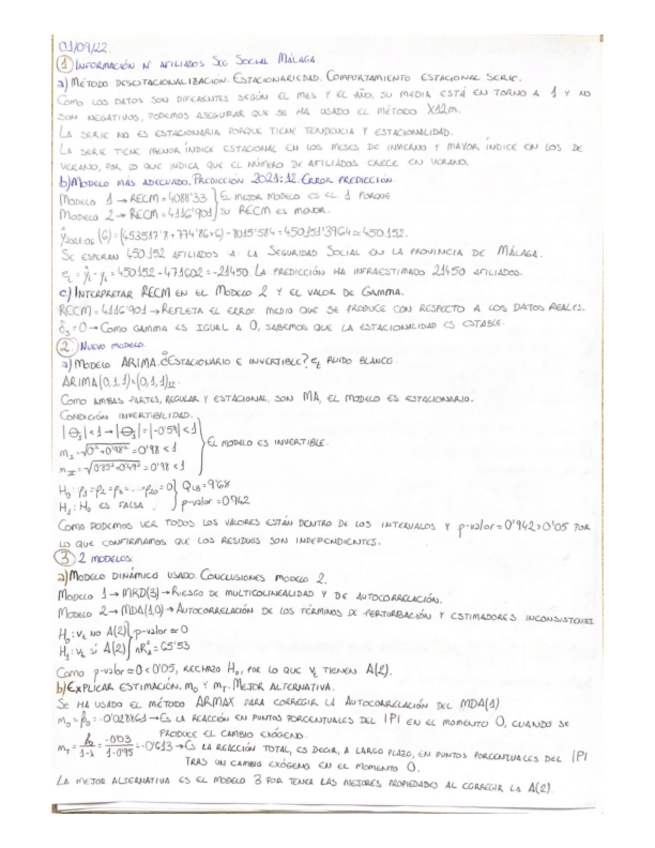 01/09/22.
① INFORMACIÓN Nº AFILIADOS SEG SOCIAL MÁLAGA.
a) MÉTODO DESESTACIONALIZACIÓN. ESTACIONARIEDAD. COMPORTAMIENTO ESTACIONAL SERIE.
COMO LOS DATOS SON DIFERENTES SEGÚN EL MES Y EL AÑO, SU MEDIA ESTÁ EN TORNO A 1 Y NO
SON NEGATIVOS, PODEMOS ASEGURAR QUE SE HA USADO EL MÉTODO X12m.
LA SERIE NO ES ESTACIONARIA PORQUE TIENE TENDENCIA Y ESTACIONALIDAD.
LA SERIE TIENE MENOR ÍNDICE ESTACIONAL EN LOS MESES DE INVIERNO Y MAYOR ÍNDICE EN LOS DE
VERANO, POR LO QUE INDICA QUE EL NÚMERO DE AFILIADOS CRECE EN VERANO.
b) MODELO MÁS ADECUADO. PREDICCIÓN 2021:12. ERROR PREDICCIÓN.
MODELO 1 → RECM = 4088'33 } EL MEJOR MODELO ES EL 1 PORQUE
MODELO 2 → RECM = 4116'901 } SU RECM ES MENOR.
ŷ2021:06 (6) = (453517'8 + 774'86×6) − 8015'584 = 450151'3964 ≃ 450152.
SE ESPERAN 450152 AFILIADOS A LA SEGURIDAD SOCIAL EN LA PROVINCIA DE MÁLAGA.
= 450152 − 471602 = −21450. LA PREDICCIÓN HA INFRAESTIMADO 21450 AFILIADOS.
c) INTERPRETAR RECM EN EL MODELO 2 Y EL VALOR DE GAMMA.
RECM = 4116'901 → REFLEJA EL ERROR MEDIO QUE SE PRODUCE CON RESPECTO A LOS DATOS REALES.
= 0 → COMO GAMMA ES IGUAL A 0, SABEMOS QUE LA ESTACIONALIDAD ES ESTABLE.
② NUEVO MODELO.
a) MODELO ARIMA. ¿ESTACIONARIO E INVERTIBLE? εt RUIDO BLANCO.
ARIMA(0,1,1)×(0,1,1)12
COMO AMBAS PARTES, REGULAR Y ESTACIONAL, SON MA, EL MODELO ES ESTACIONARIO.
CONDICIÓN INVERTIBILIDAD.
|Θ1| < 1 → |Θ1| = |−0'59| < 1
= √0²+0'98² = 0'98 < 1 } EL MODELO ES INVERTIBLE.
= √0'85²+0'49² = 0'98 < 1
H0: ρ1 = ρ2 = ρ3 = ... = ρ20 = 0 } QLB = 9'68
H1: H0 ES FALSA } p-valor = 0'942
COMO PODEMOS VER TODOS LOS VALORES ESTÁN DENTRO DE LOS INTERVALOS Y p-valor = 0'942 > 0'05 POR
LO QUE CONFIRMAMOS QUE LOS RESIDUOS SON INDEPENDIENTES.
③ 2 MODELOS.
a) MODELO DINÁMICO USADO. CONCLUSIONES MODELO 2.
MODELO 1 → MRD(3) → RIESGO DE MULTICOLINEALIDAD Y DE AUTOCORRELACIÓN.
MODELO 2 → MDA(1,0) → AUTOCORRELACIÓN DE LOS TÉRMINOS DE PERTURBACIÓN Y ESTIMADORES INCONSISTENTES
H0: vt NO A(2) } p-valor ≃ 0
H1: vt SÍ A(2) } nRa² = 65'53
COMO p-valor ≃ 0 < 0'05, RECHAZO H0, POR LO QUE vt TIENEN A(2).
b) EXPLICAR ESTIMACIÓN. m0 Y mT. MEJOR ALTERNATIVA.
SE HA USADO EL MÉTODO ARMAX PARA CORREGIR LA AUTOCORRELACIÓN DEL MDA(1)
m0 = β̂0 = −0'028861 → ES LA REACCIÓN EN PUNTOS PORCENTUALES DEL IPI EN EL MOMENTO 0, CUANDO SE
PRODUCE EL CAMBIO EXÓGENO.
mT = β0/1−λ = −0'03/1−0'95 = −0'613 → ES LA REACCIÓN TOTAL, ES DECIR, A LARGO PLAZO, EN PUNTOS PORCENTUALES DEL IPI
TRAS UN CAMBIO EXÓGENO EN EL MOMENTO 0.
LA MEJOR ALTERNATIVA ES EL MODELO 3 POR TENER LAS MEJORES PROPIEDADES AL CORREGIR LA A(2).